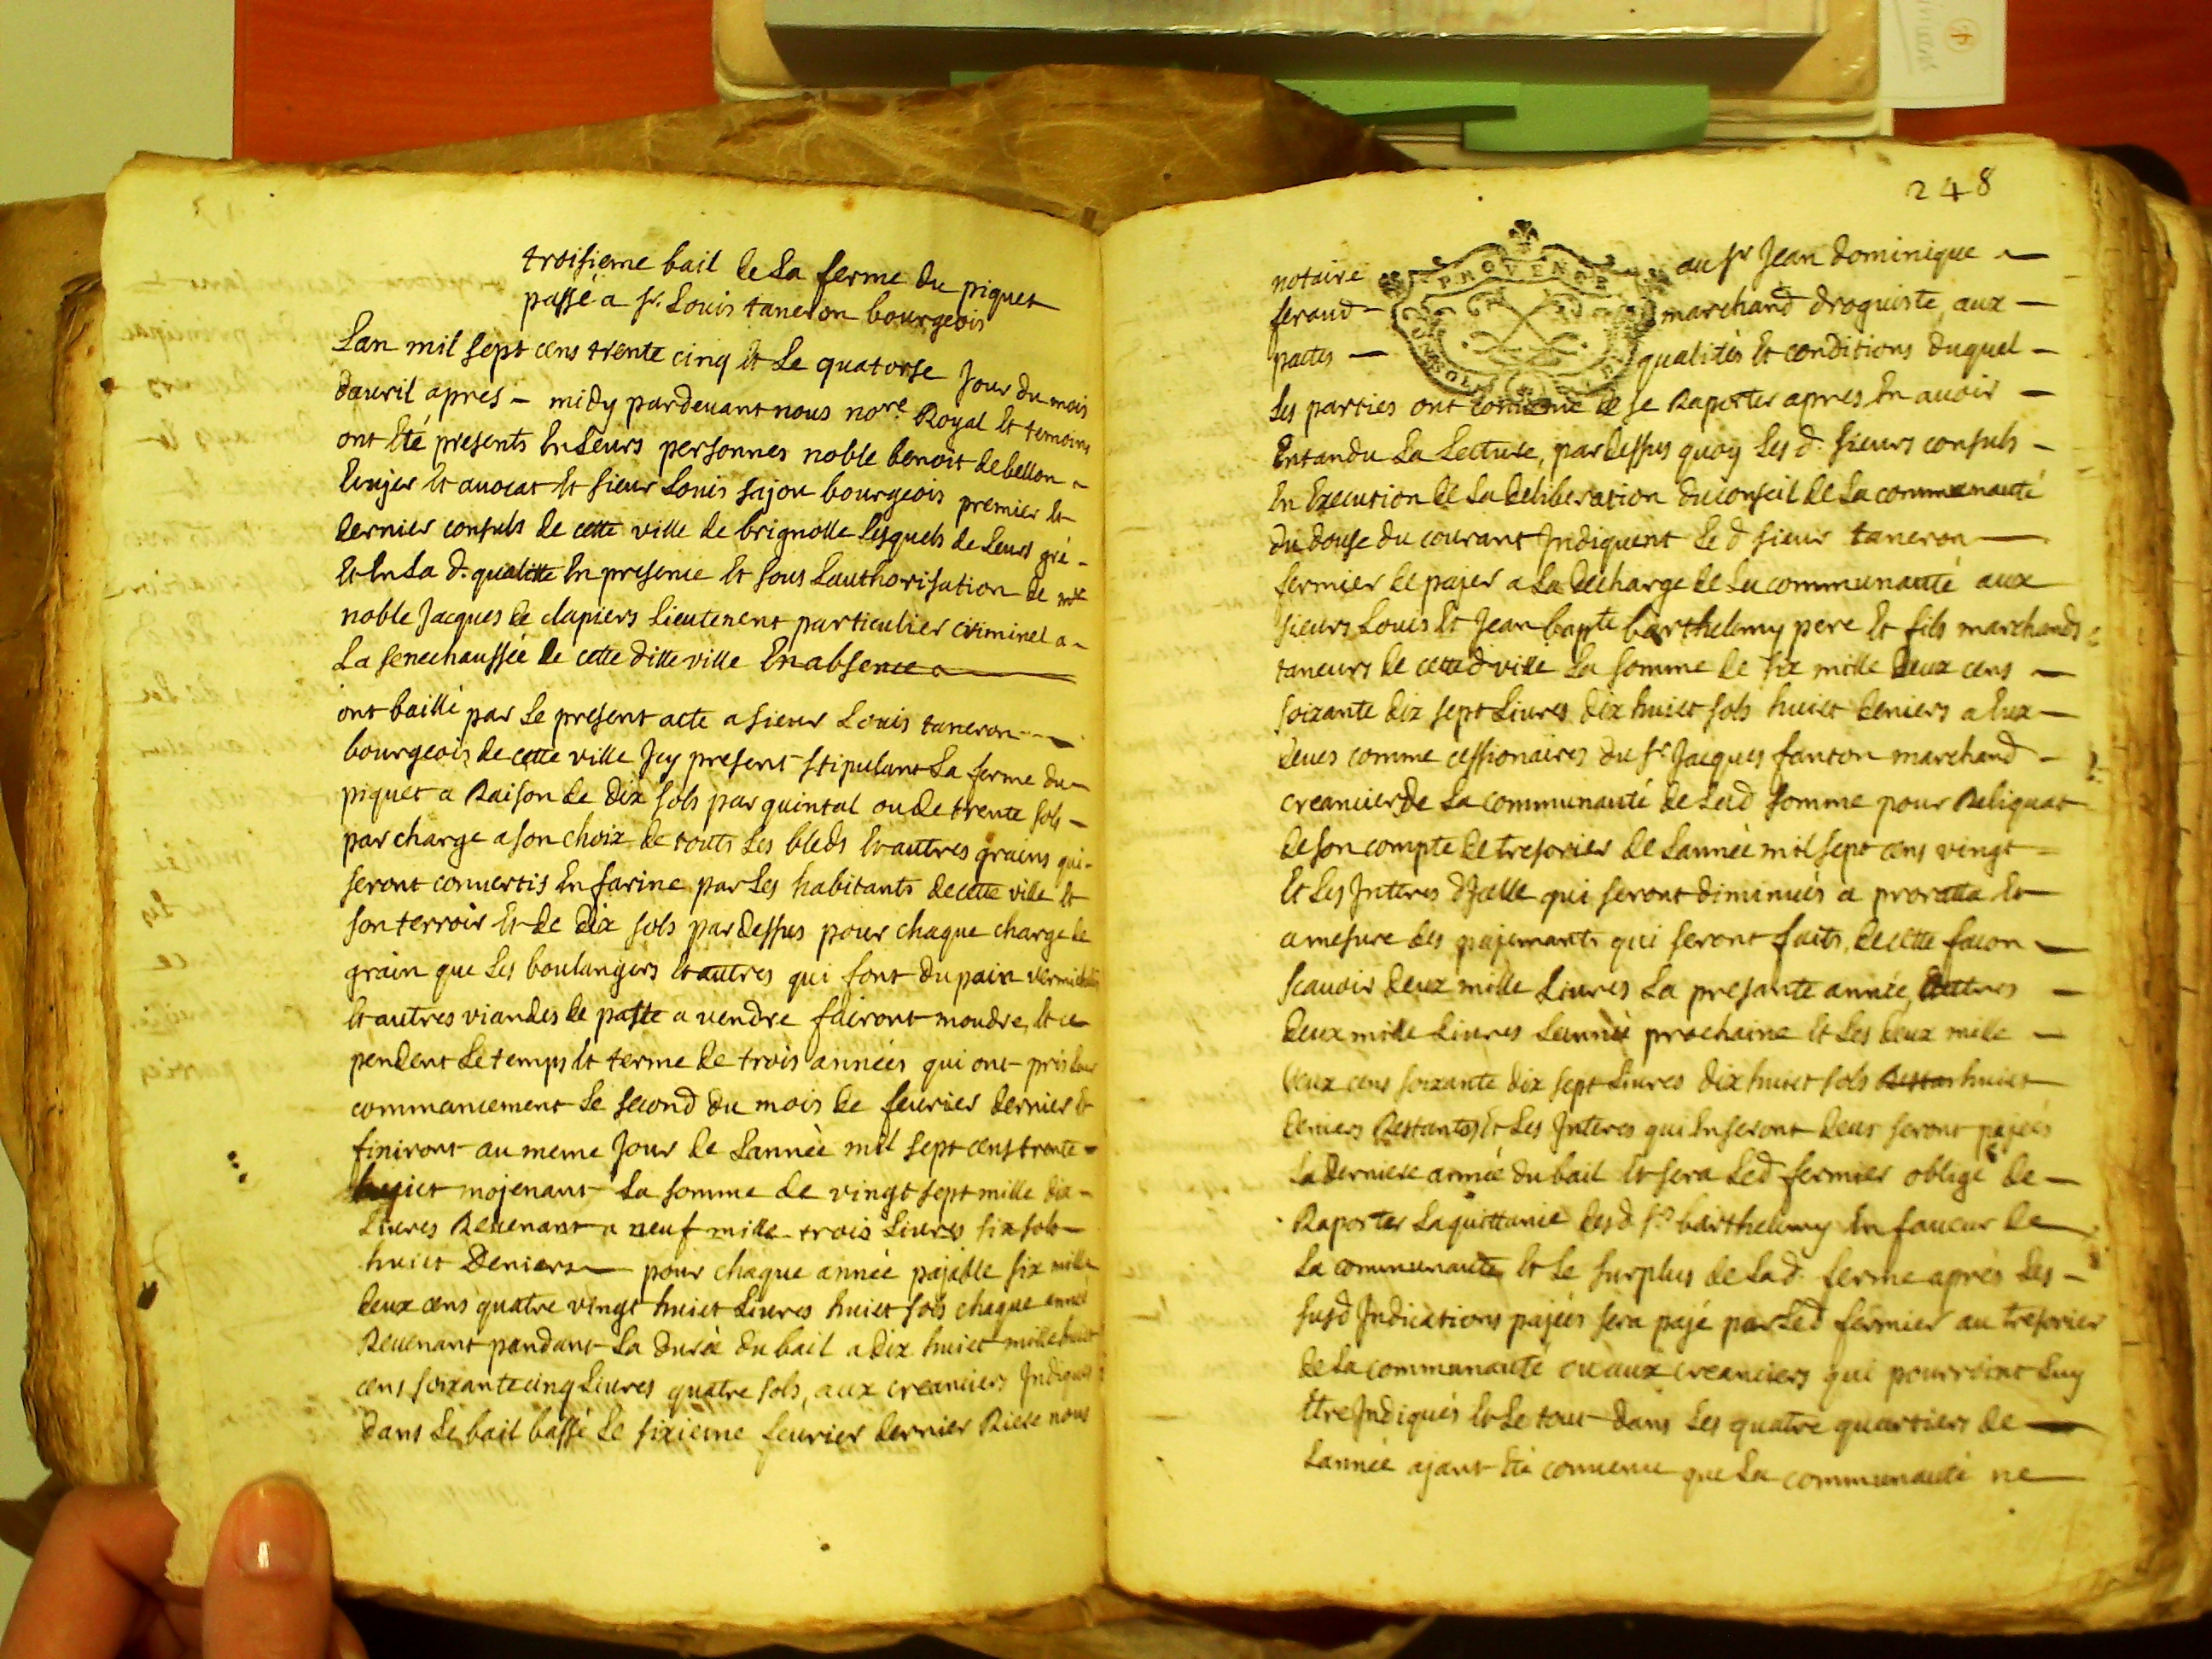 troisieme bail de La ferme du piquet
passé a sr. Louis taneron bourgeois
Lan mil sept cens trente cinq et Le quatorse Jour du mois
dauril apres - midy pardeuant nous nore Royal et temoins
ont été presents En Leurs personnes noble benoit debellon
Ecujer et auocat et sieur Louis sajou bourgeois premier et
dernier consuls de cette ville de brignolle Lesquels de Leurs gré
Et En La d. qualitte En presence et sous Lauthorisation de
noble Jacques de clapiers Lieutenent particulier criminel a
La senechaussée de cette ditte ville En absence
ont baillé par Le present acte a sieur Louis taneron
bourgeois de cette ville Jcy present stipulant La ferme du
piquet a Raison de dix sols par quintal ou de trente sols
par charge a son choix de touts Les bleds et autres grains qui
seront conuertis En farine par Les habitants de cette ville et
son terroir et de dix sols par dessus pour chaque charge de
grain que Les boulangers et autres qui font du pain
et autres viandes de paste a vendre fairont moudre, et ce
pendent Le temps et terme de trois années qui ont pris Leur
commancement Le second du mois de feurier dernier et
finiront au meme Jour de Lannée mil sept cens trente
huict mojenant La somme de vingt sept mille dix
Liures Reuenant a neuf mille trois Liures six sols
huict Deniers pour chaque année pajable six mille
deux cens quatre vingt huict Liures huict sols chaque année
Reuenant pandant La durée du bail a dix huict mille huict
cens soixante cinq Liures quatre sols, aux creanciers Jndiqués
dans Le bail bassé Le sixieme feurier dernier Riere nous
248
PROVENCE
notaire au sr Jean dominique
feraud marchand droguiste, aux
pactes qualités et conditions duquel
Les parties ont conuenu de se Raporter apres En auoir
Entandu La Lecture, par dessus quoy Les d. sieurs consuls
En Execution de La deliberation du conseil de La communauté
du douse du courant Jndiquent Le d sieur taneron
fermier de pajer a La decharge de La communauté aux
sieurs Louis et Jean bapte barthelemy pere et fils marchands
taneurs de cette d ville La somme de six mille deux cens
soixante dix sept Liures dix huict sols huict deniers a Eux
deues comme cessionaires du sr Jacques fanton marchand
creancier de La communauté de Lad somme pour Reliquat
de son compte de tresorier de Lannée mil sept cens vingt
et Les Jnteres dJcelle qui seront diminués a proratta et
a mesure des pajemants qui seront faits, de cette facon
scauoir deux mille Liures La presante année,
deux mille Liures Lannée prochaine et Les deux mille
deux cens soixante dix sept Liures dix huict sols huict
deniers Restants et Les Jnteres qui En seront deus seront pajeés
La derniere année du bail et sera Led fermier obligé de
Raporter La quittance desd srs barthelemy En faueur de
La communauté, et Le surplus de Lad. ferme aprés Les
susd Jndications pajeés sera pajé par Led fermier au tresorier
de La communauté ou aux creanciers qui pourront Luy
Etre Jndiqués et Le tout dans Les quatre quartiers de
Lannée ajant été conuenu que La communauté ne